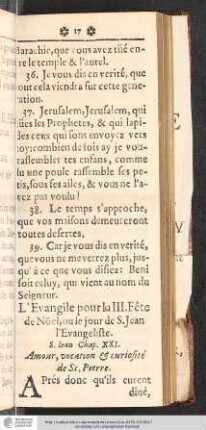 17
Barachie, que vous avez tüé en-
tre le temple & l'autel.
36. Je vous dis en verité, que
tout cela viendra sur cette gene-
ration.
37. Jerusalem, Jerusalem, qui
tües les Prophetes, & qui lapi-
des ceux qui sont envoyez vers
toy: combien de fois ay je vou-
rassembler tes enfans, comme
une poule rassemble ses pe-
tis, sous ses ailes, & vous ne l'a-
vez pas voulu!
38. Le temps s'approche,
que vos maisons demeureront
toutes desertes.
39. Car je vous dis en verité,
que vous ne me verrez plus, jus-
qu' à ce que vous disiez: Beni
soit celuy, qui vient au nom du
Seigneur.
L'Evangile pour la III. Fête
de Nöel, ou le jour de S. Jean
l'Evangeliste.
S. Jean Chap. XXI.
Amour, vocation & curiosité
de St. Pierre.
Aprés donc qu'ils eurent
diné,